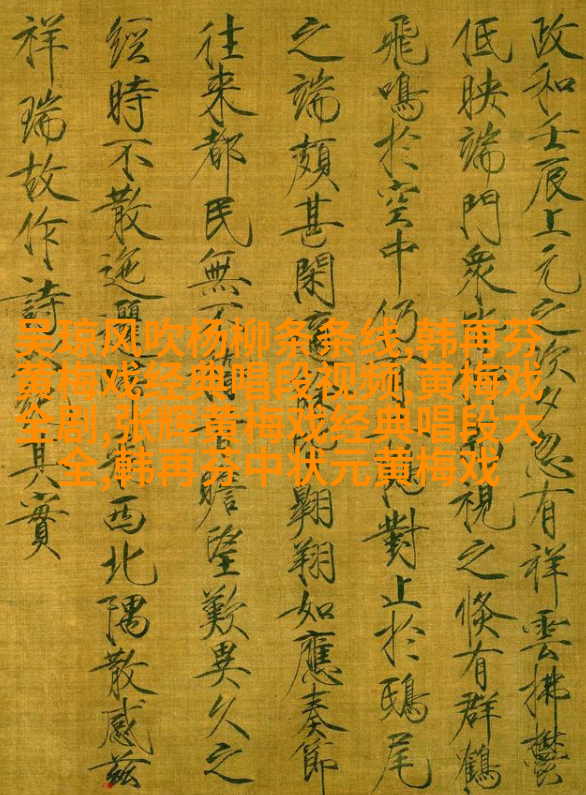 政和壬辰上元之次夕忽有祥雲拂鬱
低映端門衆視之倏有群鶴
飛鳴於空中仍對止於鴟尾
之端頗甚閑適翱翔如應奏節
往來都民無不瞻望歎異久之
經時不散迤邐西北隅散感茲
祥瑞故作詩其實
吴琼风吹杨柳条条线,韩再芬
黄梅戏经典唱段视频,黄梅戏
全剧,张辉黄梅戏经典唱段大
全,韩再芬中状元黄梅戏